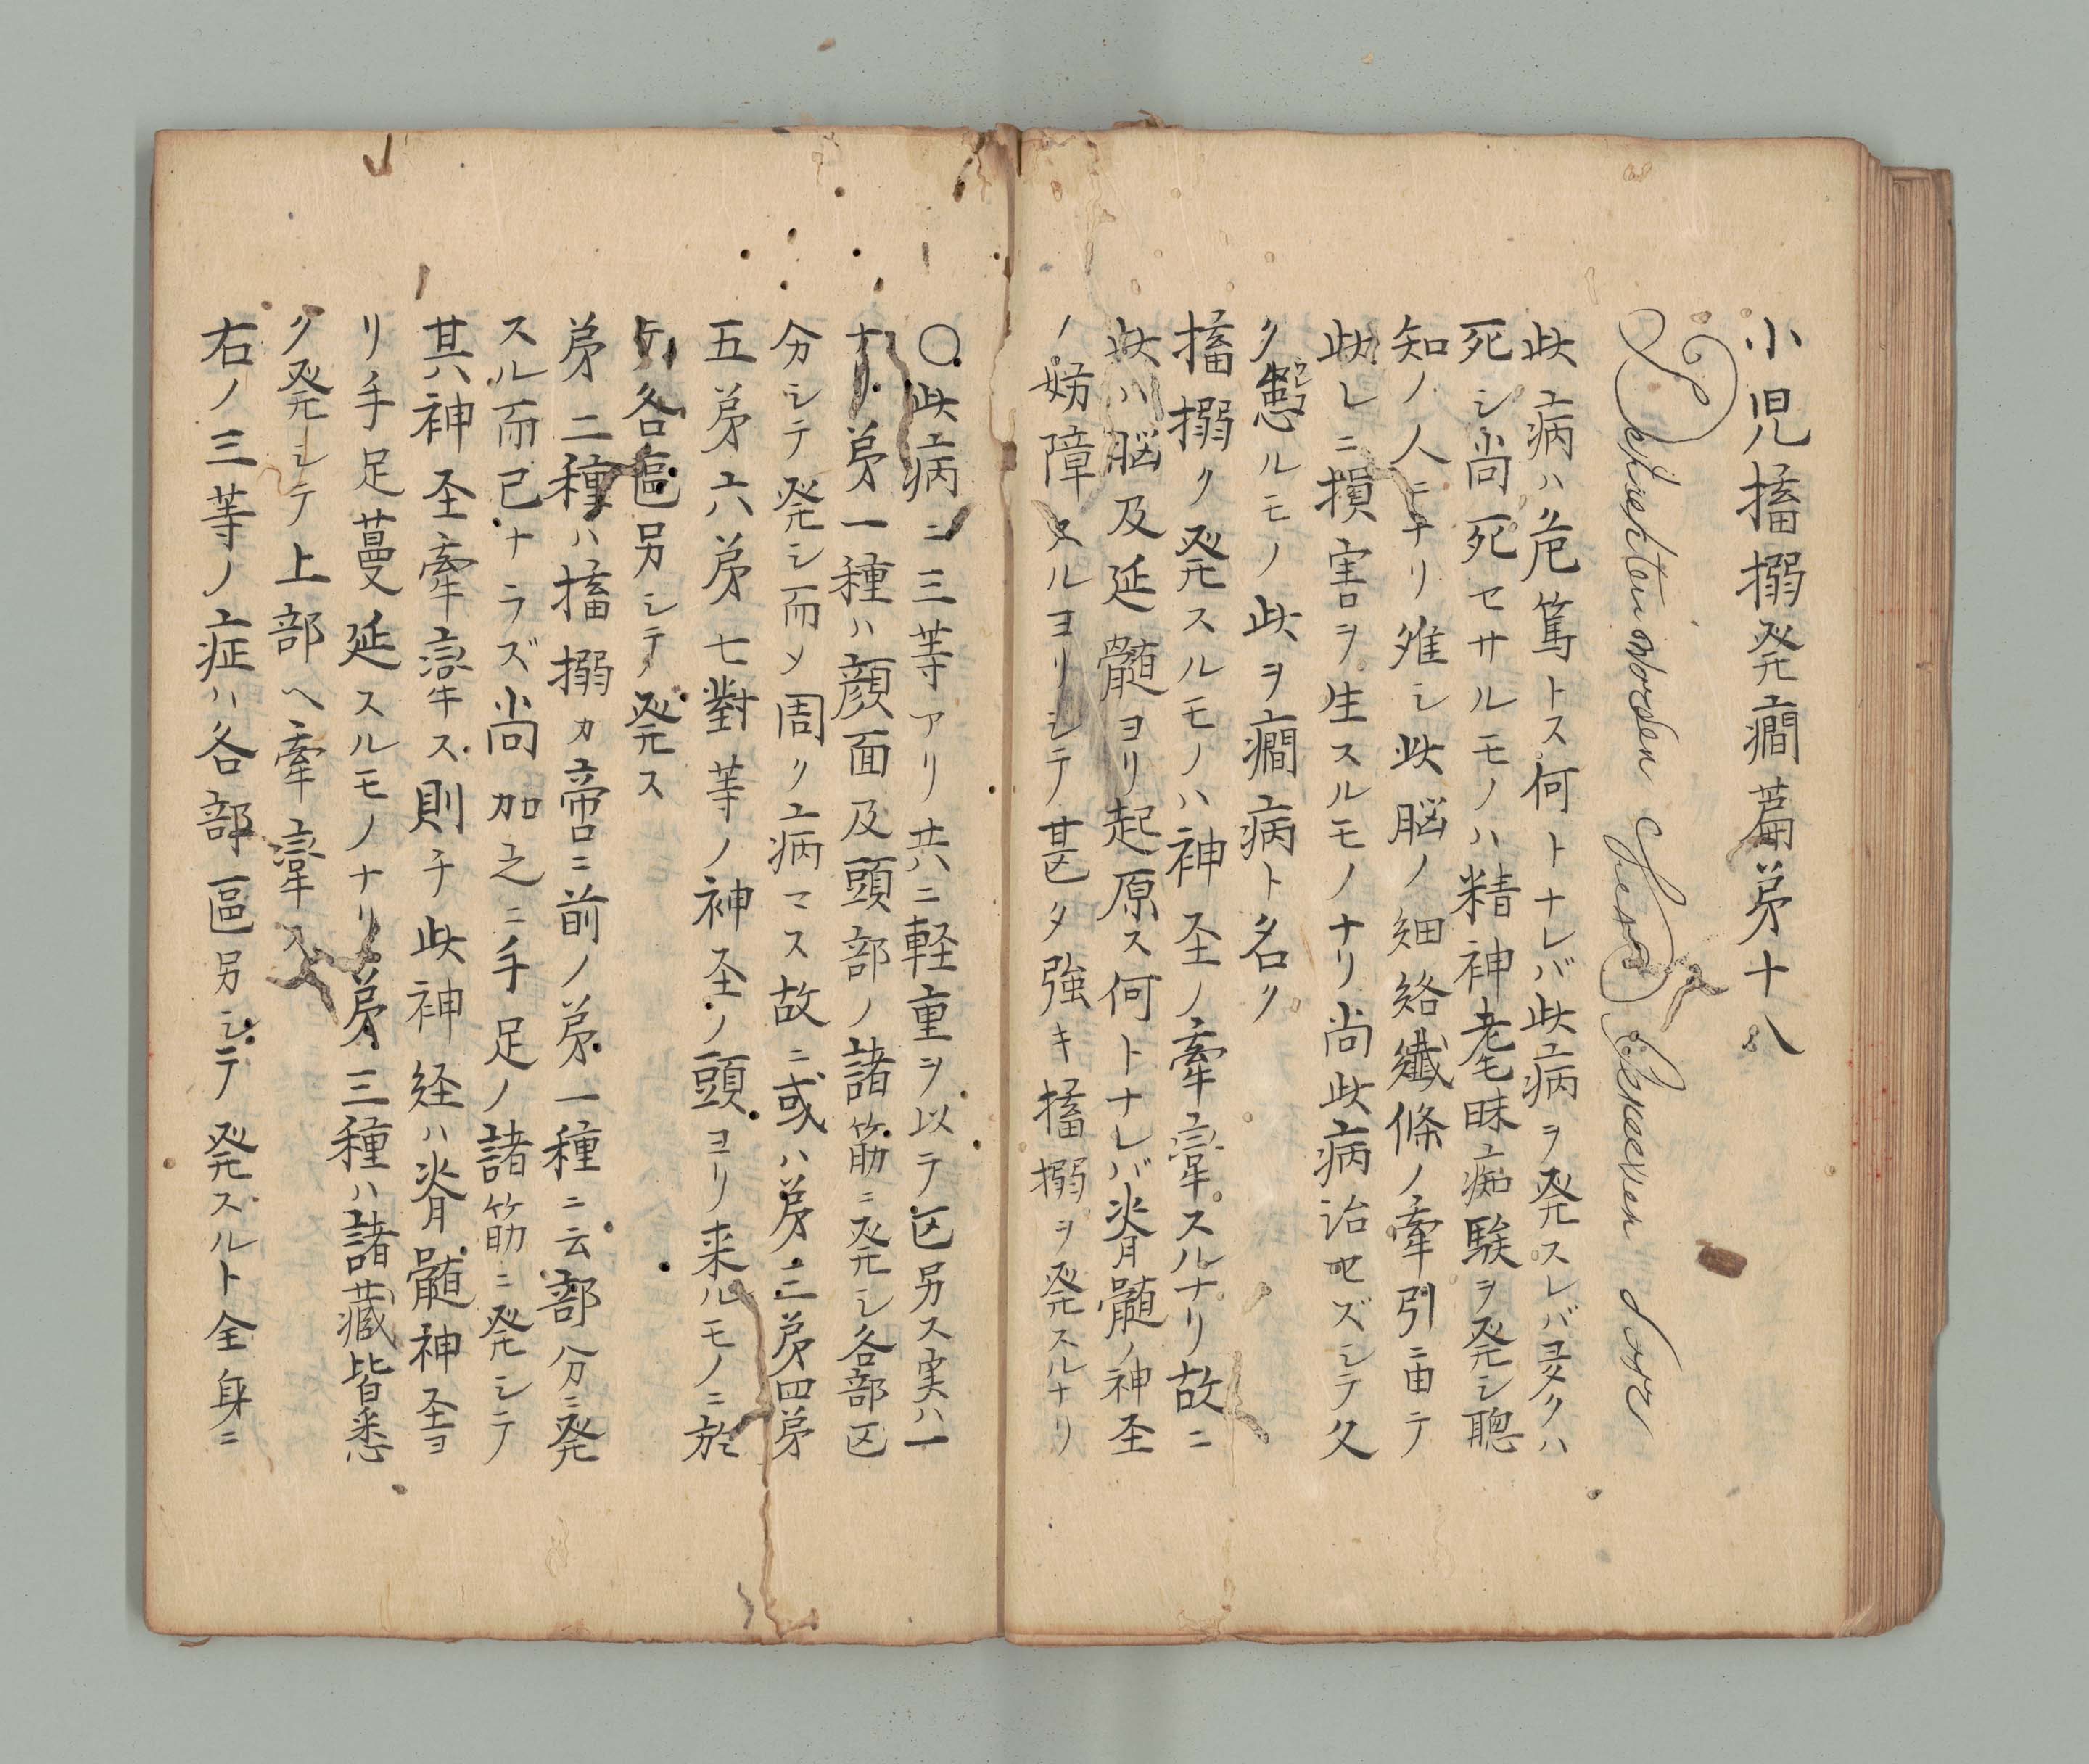 小児搐搦発癇篇第十八
此病ハ危篤トス何トナレバ此病ヲ発スレバ多クハ
死シ尚死セサルモノハ精神耄昧痴騃ヲ発シ聰
知ノ人ナリ雖シ此脳ノ細絡纎條ノ牽引ニ由テ
此レニ損害ヲ生スルモノナリ尚此病治セズシテ久
ク憗ルモノ此ヲ癇病ト名ク
搐搦ク発スルモノハ神圣ノ牽㓻スルナリ故ニ
此ハ脳及延髄ヨリ起原ス何トナレバ脊髄ノ神圣
ノ妨障スルヨリシテ甚タ強キ搐搦ヲ発スルナリ
〇此病ニ三等アリ共ニ軽重ヲ以テ区另ス実ハ一
ナリ第一種ハ顔面及頭部ノ諸筋ニ発シ各部区
分シテ発シ而メ周ク病マス故ニ或ハ第三第四第
五第六第七對等ノ神圣ノ頭ヨリ来ルモノニ於
ケ各區另シテ発ス
第二種ハ搐搦カ啻ニ前ノ第一種ニ云部分ニ発
スル而已ナラズ尚加之ニ手足ノ諸筋ニ発シテ
其ハ神圣牽㓻ス則チ此神経ハ脊髄神圣ヨ
リ手足蔓延スルモノナリ第三種ハ諸蔵皆悉
ク発シテ上部ヘ牽㓻ス
右ノ三等ノ症ハ各部區另シテ発スルト全身ニ